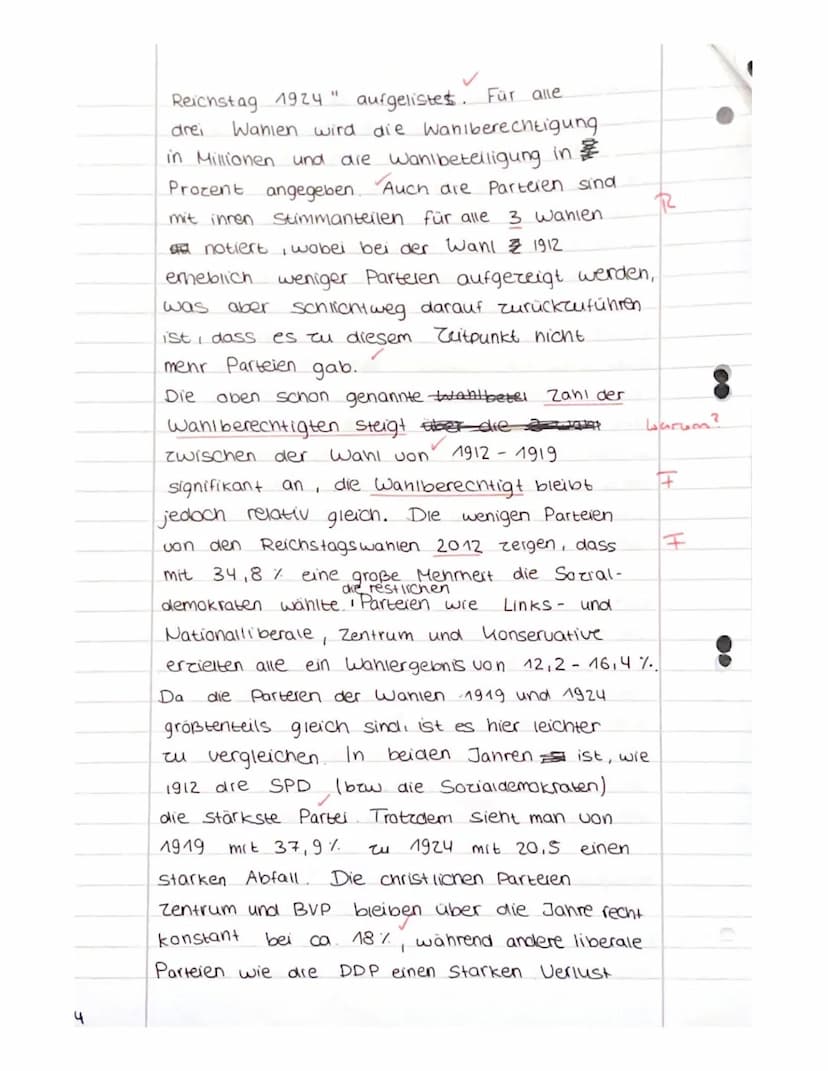 Reichstag 1924" aufgelistet. Für alle
drei Wahlen wird die Wahlberechtigung
in Millionen und die Wahlbeteiligung in
Prozent angegeben. Auch die Parteien sind
R
mit ihren Stimmanteilen für alle 3 Wahlen
notiert, wobei bei der Wahl 1912
erheblich weniger Parteien aufgezeigt werden,
was aber schlichtweg darauf zurückzuführen
ist, dass es zu diesem Zeitpunkt nicht
mehr Parteien gab.
Die oben schon genannte Wahlbetei Zahl der
Wahlberechtigten steigt über die warum?
zwischen der Wahl von 1912 - 1919
signifikant an, die Wahlberechtigt bleibt F
jedoch relativ gleich. Die wenigen Parteien
von den Reichstagswahlen 2012 zeigen, dass F
mit 34,8 % eine große Mehrheit die Sozial-
die restlichen
demokraten wählte, Parteien wie Links- und
Nationalliberale, Zentrum und Konservative
erzielten alle ein Wahlergebnis von 12,2 - 16,4 %.
Da die Parteien der Wahlen 1919 und 1924
größtenteils gleich sind, ist es hier leichter
zu vergleichen. In beiden Jahren ist, wie
1912 die SPD (bzw die Sozialdemokraten)
die stärkste Partei. Trotzdem sieht man von
1919 mit 37,9 % zu 1924 mit 20,5 einen
starken Abfall. Die christlichen Parteien
Zentrum und BVP bleiben über die Jahre recht
konstant bei ca. 18 %, während andere liberale
Parteien wie die DDP einen starken Verlust
4